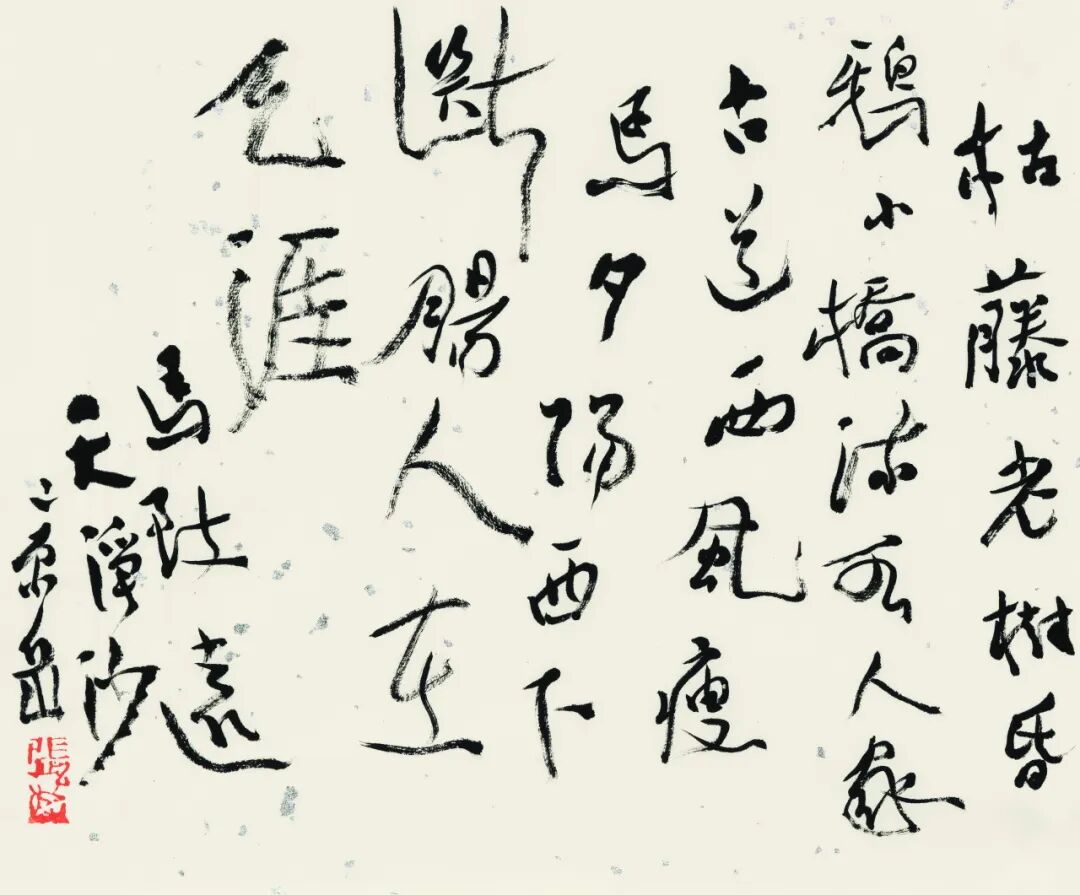 枯藤老樹昏
鴉小橋流水人家
古道西風瘦
馬夕陽西下
斷腸人在
天涯
馬致遠
天淨沙
張